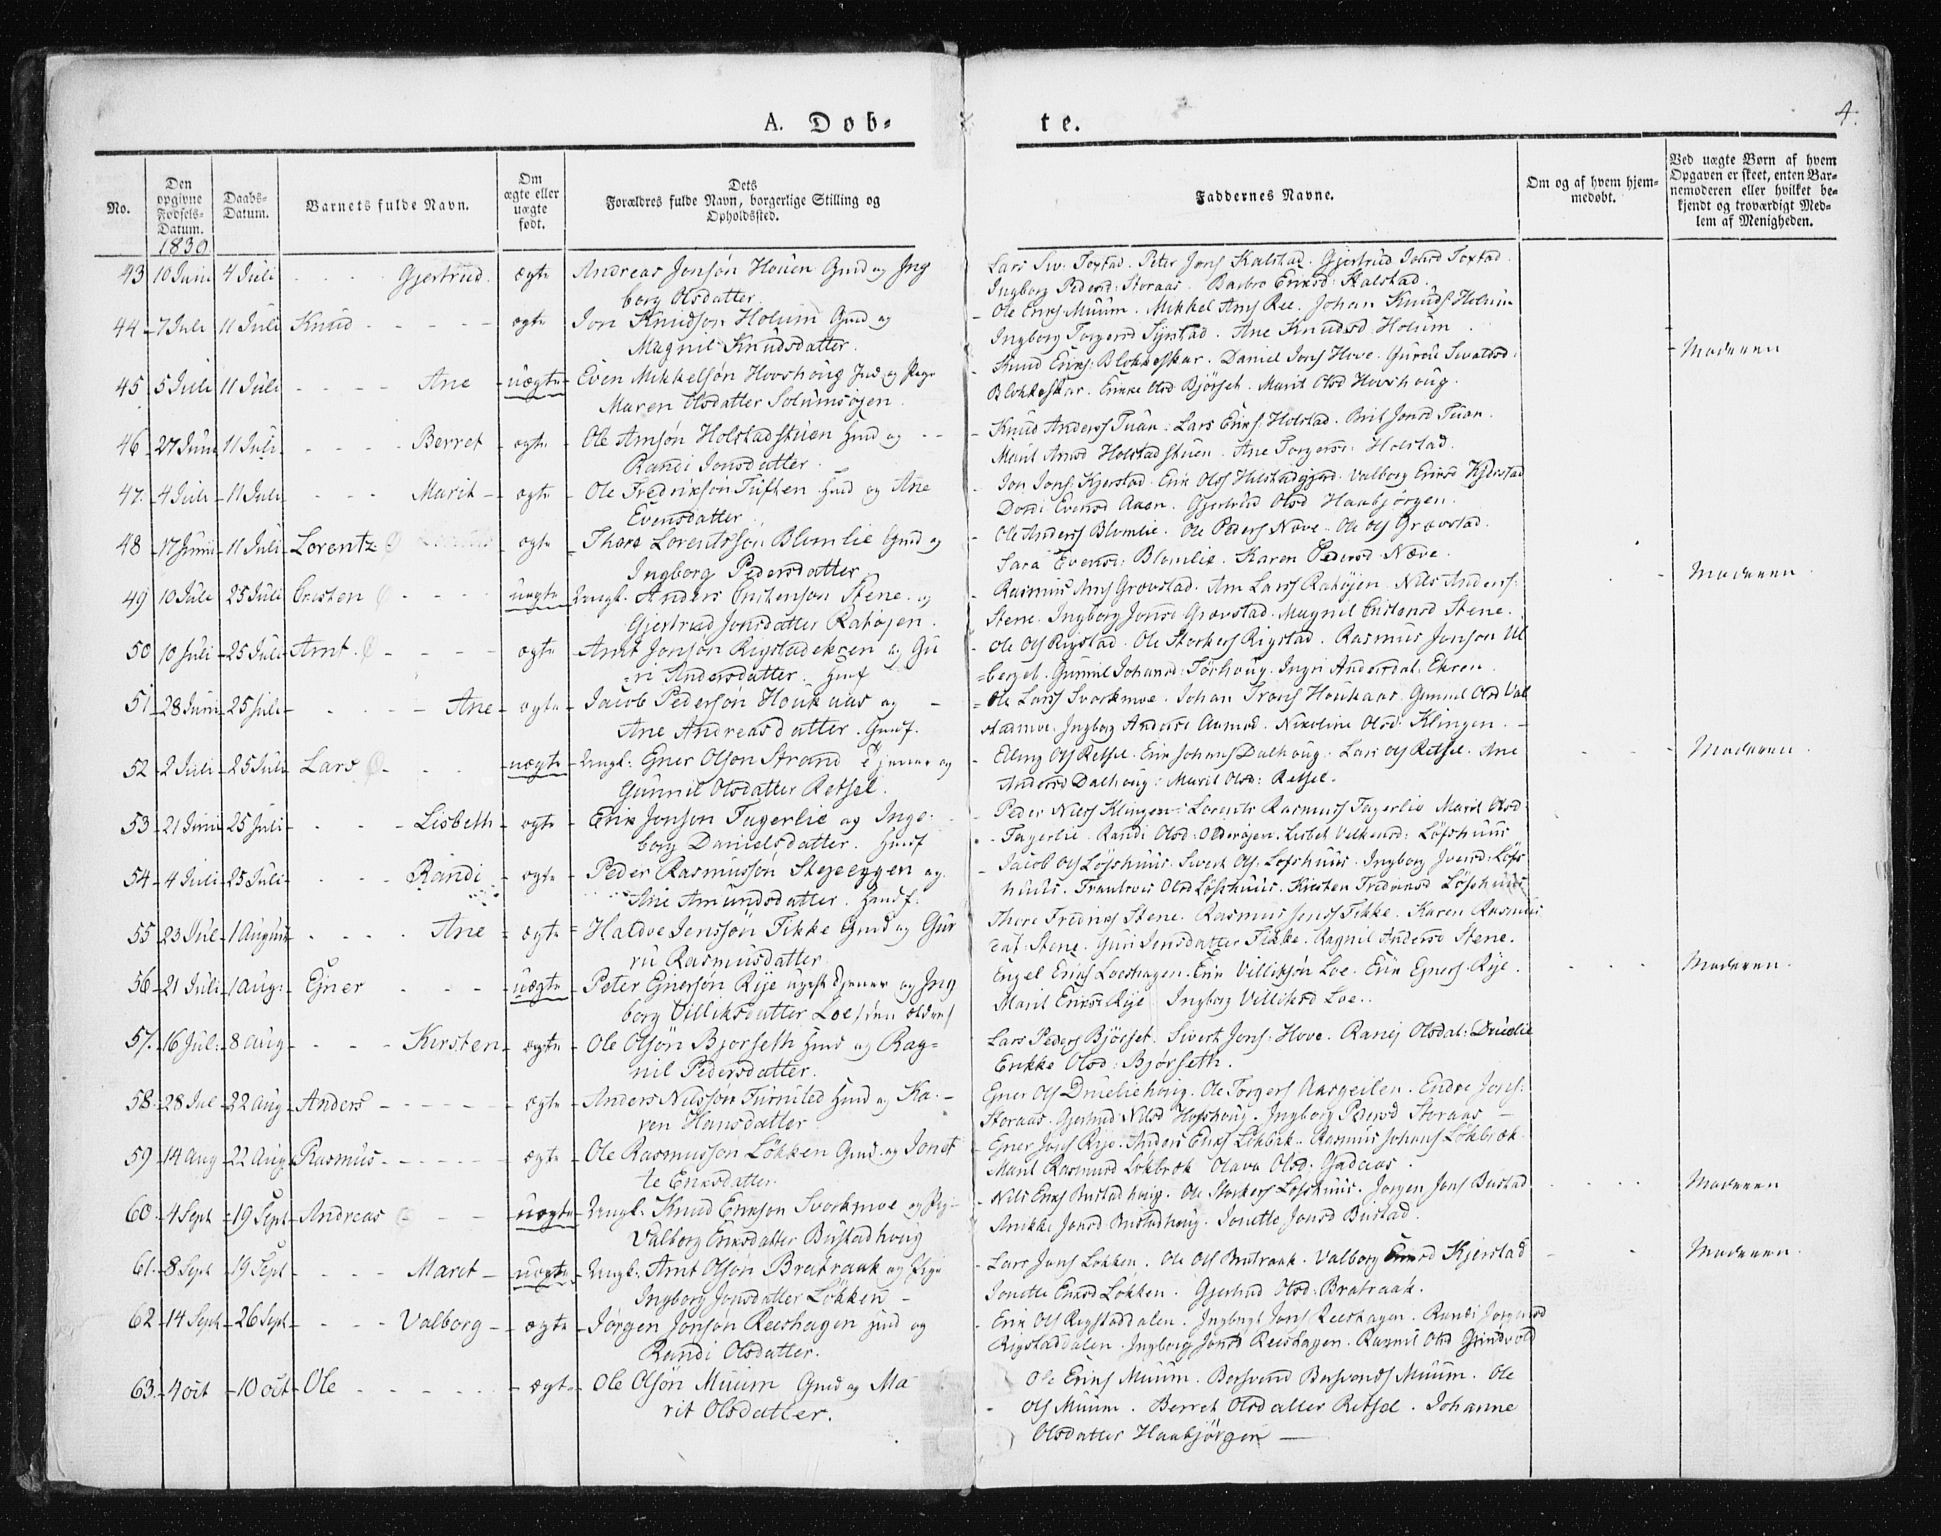 A. Døb=
te.
4.
No.
Den opgivne Fødsels-Datum.
Daabs-Datum.
Barnets fulde Navn.
Om ægte eller uægte født.
Dets Forældres fulde Navn, borgerlige Stilling og Opholdssted.
Faddernes Navne.
Om og af hvem hjem-medøbt.
Ved uægte Børn af hvem Opgaven er skeet, enten Bar-nemoderen eller hvilket be-kjendt og troværdigt Med-lem af Menigheden.
1830
43 10 Juni 4 Juli Gjertrud ægte Andreas Jonsøn Houen Gmd og Ing
borg Olsdatter.
Peter Jons Kalstad. Gjertrud
Ingborg Pedersd: Storaas. Eriksd: Kalstad.
44 7 Juli 11 Juli Knud ægte Jon Knudsøn Holum Gmd og
Magnil Knudsdatter.
Ole Eriks Muum. Mikkel Ree. Johan Knuds Holum
Ingborg Ane Knudsd Holum.
45 5 Juli 11 Juli Ane uægte Even Mikkelsøn Hovshoug og
Maren Olsdatter
Knud Eriks: Blokkeskar. Daniel Jons Hove.
Blokkeskar. Olsd Bjørset. Marit Olsd Hovshoug.
Moderen
46 27 Juni 11 Juli Berret ægte Ole Arnsøn Holstadstuen Hmd og
Randi Jonsdatter.
Knud Anders Tuan. Lars Eriks Holstad. Brit Jonsd Tuan.
Marit Arnsd Holstadstuen. Ane Holstad.
47. 4 Juli 11 Juli Marit ægte Ole Fredriksøn Tuften Hmd og Ane
Evensdatter.
Jon Jons: Kjerstad. Erik Ols Valborg Eriksd Kjerstad
Evensd Aaen. Gjertrud Olsd Haabjørgen.
48 17 Juni 11 Juli Lorentz ægte Thore Lorentsøn Blomlie Gmd og
Ingborg Pedersdatter
Ole Anders Blomlie. Ole Peders Næve. Ole Ols Grøvstad.
Sara Evensd: Blomlie. Karen Pedersd Næve.
49 10 Juli 25 Juli Cristen uægte Ungk. Anders Cristensøn Stene og
Gjertrud Jonsdatter Ratøjen.
Rasmus Grøvstad. Lars Ratøjen. Nils Anders:
Stene. Ingborg Jonsd Grøvstad. Magnil Cristensd Stene.
Moderen
50 10 Juli 25 Juli Arnt ægte Arnt Jonsøn Rigstadekren og Gu
ri Andersdatter. Husf
Ole Ols Rigstad. Ole Storkers Rigstad. Rasmus Jonsøn Ul
berget. Gunnil Johansd: Ingri Andersdat. Ekren.
51 28 Juni 25 Juli Ane ægte Jacob Pedersøn Houkaas og
Ane Andreasdatter. Gmsf.
Ole Lars Svorkmoe. Johan Houkaas. Gunnil Olsd
Ingborg Andersd Aamod. Nikoline Olsd: Klingen.
52 2 Juli 25 Juli Lars uægte Ungk: Egner Olsøn Strand Tjener og
Gunnil Olsdatter Retsel.
Elling Ols Retsel. Erik Johans Dalhoug. Lars Ols Retsel. Ane
Andersd Dalhoug: Marit Olsd: Retsel.
Moderen
53 21 Juni 25 Juli Lisbeth ægte Erik Jonsøn Fagerlie og Inge
borg Danielsdatter. Husf
Peder Nils Klingen. Lorents Rasmus Fagerlie Marit Olsd:
Fagerlie. Randi Olsd: Løfshuus
54 4 Juli 25 Juli Randi ægte Peder Rasmussøn og
Ane Amundsdatter. Husf.
Jacob Ols Løfshuus. Sivert Ols: Løfshuus. Ingborg Løfs
huus. Olsd Løfshuus. Kirsten Løfshuus
55 23 Jul 1 August Ane ægte Haldoe Jenssøn Fikke Gmd og Gur
ru Rasmusdatter
Thore Stene. Rasmus Jens Fikke. Karen Rasmus
dat: Stene. Guri Jensdatter Fikke. Ragnil Andersd Stene.
56 21 Juli 1 Aug: Ejner uægte Peter Ejnersøn Rye Tjener og Ing
borg Villiksdatter Loe
Engel Eriks Loeshagen. Erik Villiksøn Loe. Erik Egners Rye.
Marit Eriksd Rye. Ingborg Villiksd Loe.
Moderen
57. 16 Jul: 8 Aug Kirsten ægte Ole Olsøn Bjørseth Hmd og Rag-
nil Pedersdatter.
Lars Peders Bjørset. Sivert Jons: Hove. Olsdat: Druelie
Erikke Olsd: Bjørseth.
58. 28 Jul 22 Aug Anders ægte Anders Nilssøn Hmd og Ka-
ren Hansdatter
Egner Ols Drueliehoug. Ole Torgers Endre Jons:
Storaas. Gjertrud Nilsd Hovshoug. Ingborg Storaas
59 14 Aug 22 Aug Rasmus ægte Ole Rasmussøn Løkken Gmd og Jonet
te Eriksdatter.
Egner Jons Rye. Anders Eriks Løkbæk. Rasmus Johans Løkbæk.
Marit Rasmusd Løkbæk Olava Olsd:
60. 4 Sept 19 Sept Andreas uægte Ungk. Knud Eriksøn Svorkmoe og
Valborg Eriksdatter Bustadhoug
Nils Eriks Bustadhoug. Ole Storkers Løfshuus. Jørgen Jons Bustad
Anikke Jonsd Bustadhoug. Jonette Jonsd Bustad.
Moderen
61. 8 Sept 19 Sept Maret uægte Ungk. Arnt Olsøn Bratraak og Pige
Ingborg Jonsdatter Løkken
Lars Jons Løkken. Ole Ols Bratraak. Valborg Kjerstad
Jonette Eriksd Løkken. Gjertrud Olsd: Bratraak.
Moderen.
62 14 Sept 26 Sept Valborg ægte Jørgen Jonsøn Reeshagen Hmd og
Randi Olsdatter.
Erik Ols Rigstaddalen. Ingbrigt Jons Reeshagen. Randi Jørgensd
Rigstaddalen. Ingborg Jonsd Reeshagen. Ragnil Olsd Grindvold
63 4 Oct 10 Oct Ole ægte Ole Olsøn Muum Gmd og Ma
rit Olsdatter.
Ole Eriks Muum. Bersvend Bersvends Muum. Ole
Ols Muum. Berret Olsdatter Retsel. Johanne
Olsdatter Haabjørgen